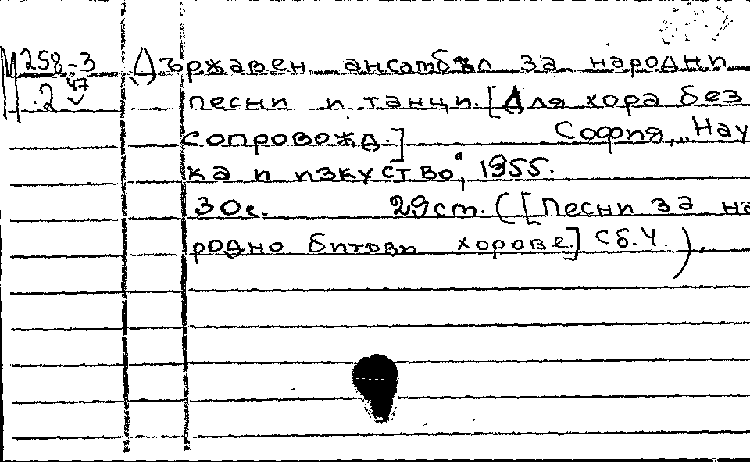 М 258-3 Държавен ансамбъл за народни
47
2 песни и танци. [Для хора без
сопровожд.] София, Нау
ка и изкуство", 1955.
30с. 29см. ([Песни за на
родно битови хорове] Сб.4.).